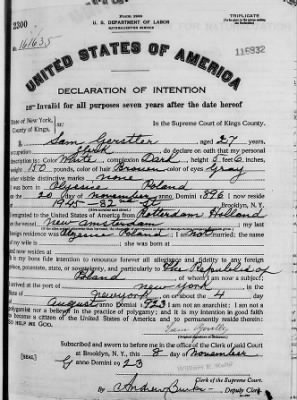 2300
Form 2203
U. S. DEPARTMENT OF LABOR
NATURALIZATION SERVICE
TRIPLICATE
No. 161635
116932
UNITED STATES OF AMERICA
DECLARATION OF INTENTION
Invalid for all purposes seven years after the date hereof
State of New York,
County of Kings,
In the Supreme Court of Kings County.
I, Sam Gerstler, aged 27 years,
occupation Clerk, do declare on oath that my personal
description is: Color White, complexion Dark, height 5 feet inches,
weight 150 pounds, color of hair Brown, color of eyes Gray
other visible distinctive marks none
I was born in Poland
on the 20 day of November, anno Domini 1896; I now reside
at 1945 - 82nd St Brooklyn, N. Y.
I emigrated to the United States of America from Rotterdam Holland
on the vessel New Amsterdam; my last
foreign residence was Poland; I am not married; the name
of my wife is ; she was born at
and now resides at
It is my bona fide intention to renounce forever all allegiance and fidelity to any foreign
prince, potentate, state, or sovereignty, and particularly to The Republic of
Poland, of whom I am now a subject;
I arrived at the port of New York, in the
State of New York, on or about the 4 day
of August, anno Domini 1923; I am not an anarchist; I am not a
polygamist nor a believer in the practice of polygamy; and it is my intention in good faith
to become a citizen of the United States of America and to permanently reside therein:
SO HELP ME GOD.
Subscribed and sworn to before me in the office of the Clerk of said Court
at Brooklyn, N. Y., this 8 day of November
[SEAL] anno Domini 1923
Clerk of the Supreme Court.
By Deputy Clerk